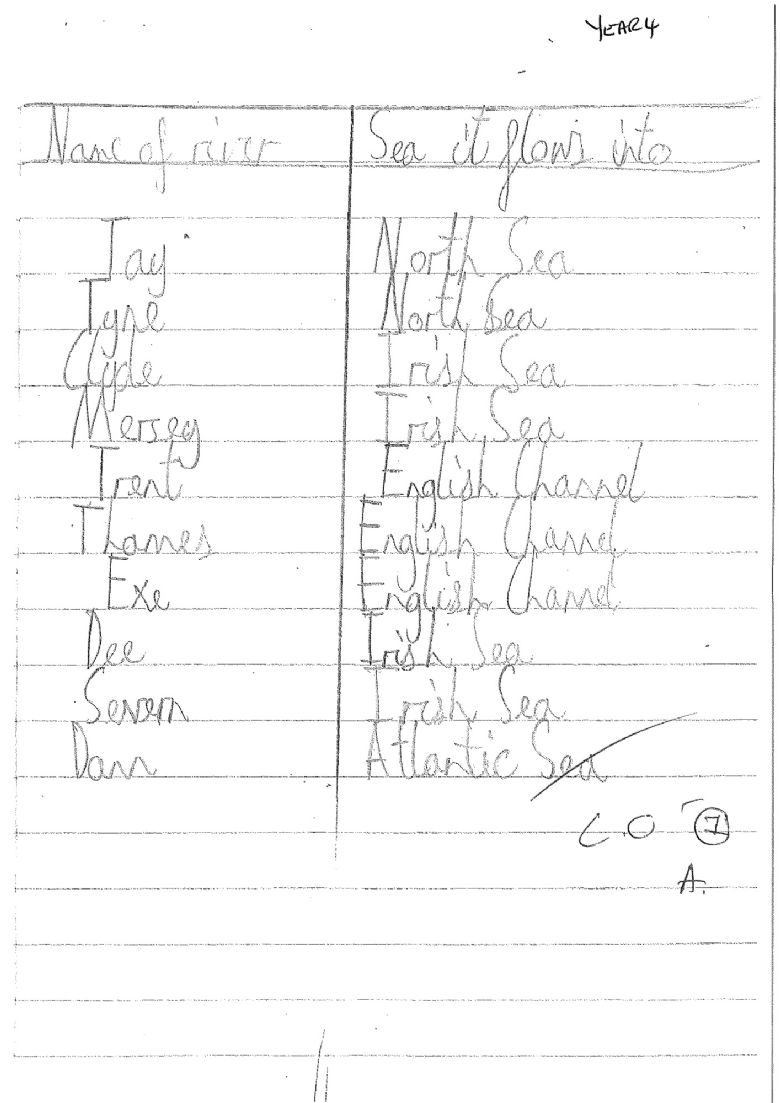 YEAR 4
Name of river Sea it flows into
Tay North Sea
Tyne North Sea
Clyde Irish Sea
Mersey Irish Sea
Trent English Channel
Thames English Channel
Exe English Channel
Dee Irish Sea
Severn Irish Sea
Dann Atlantic Sea
L.O 7
A.